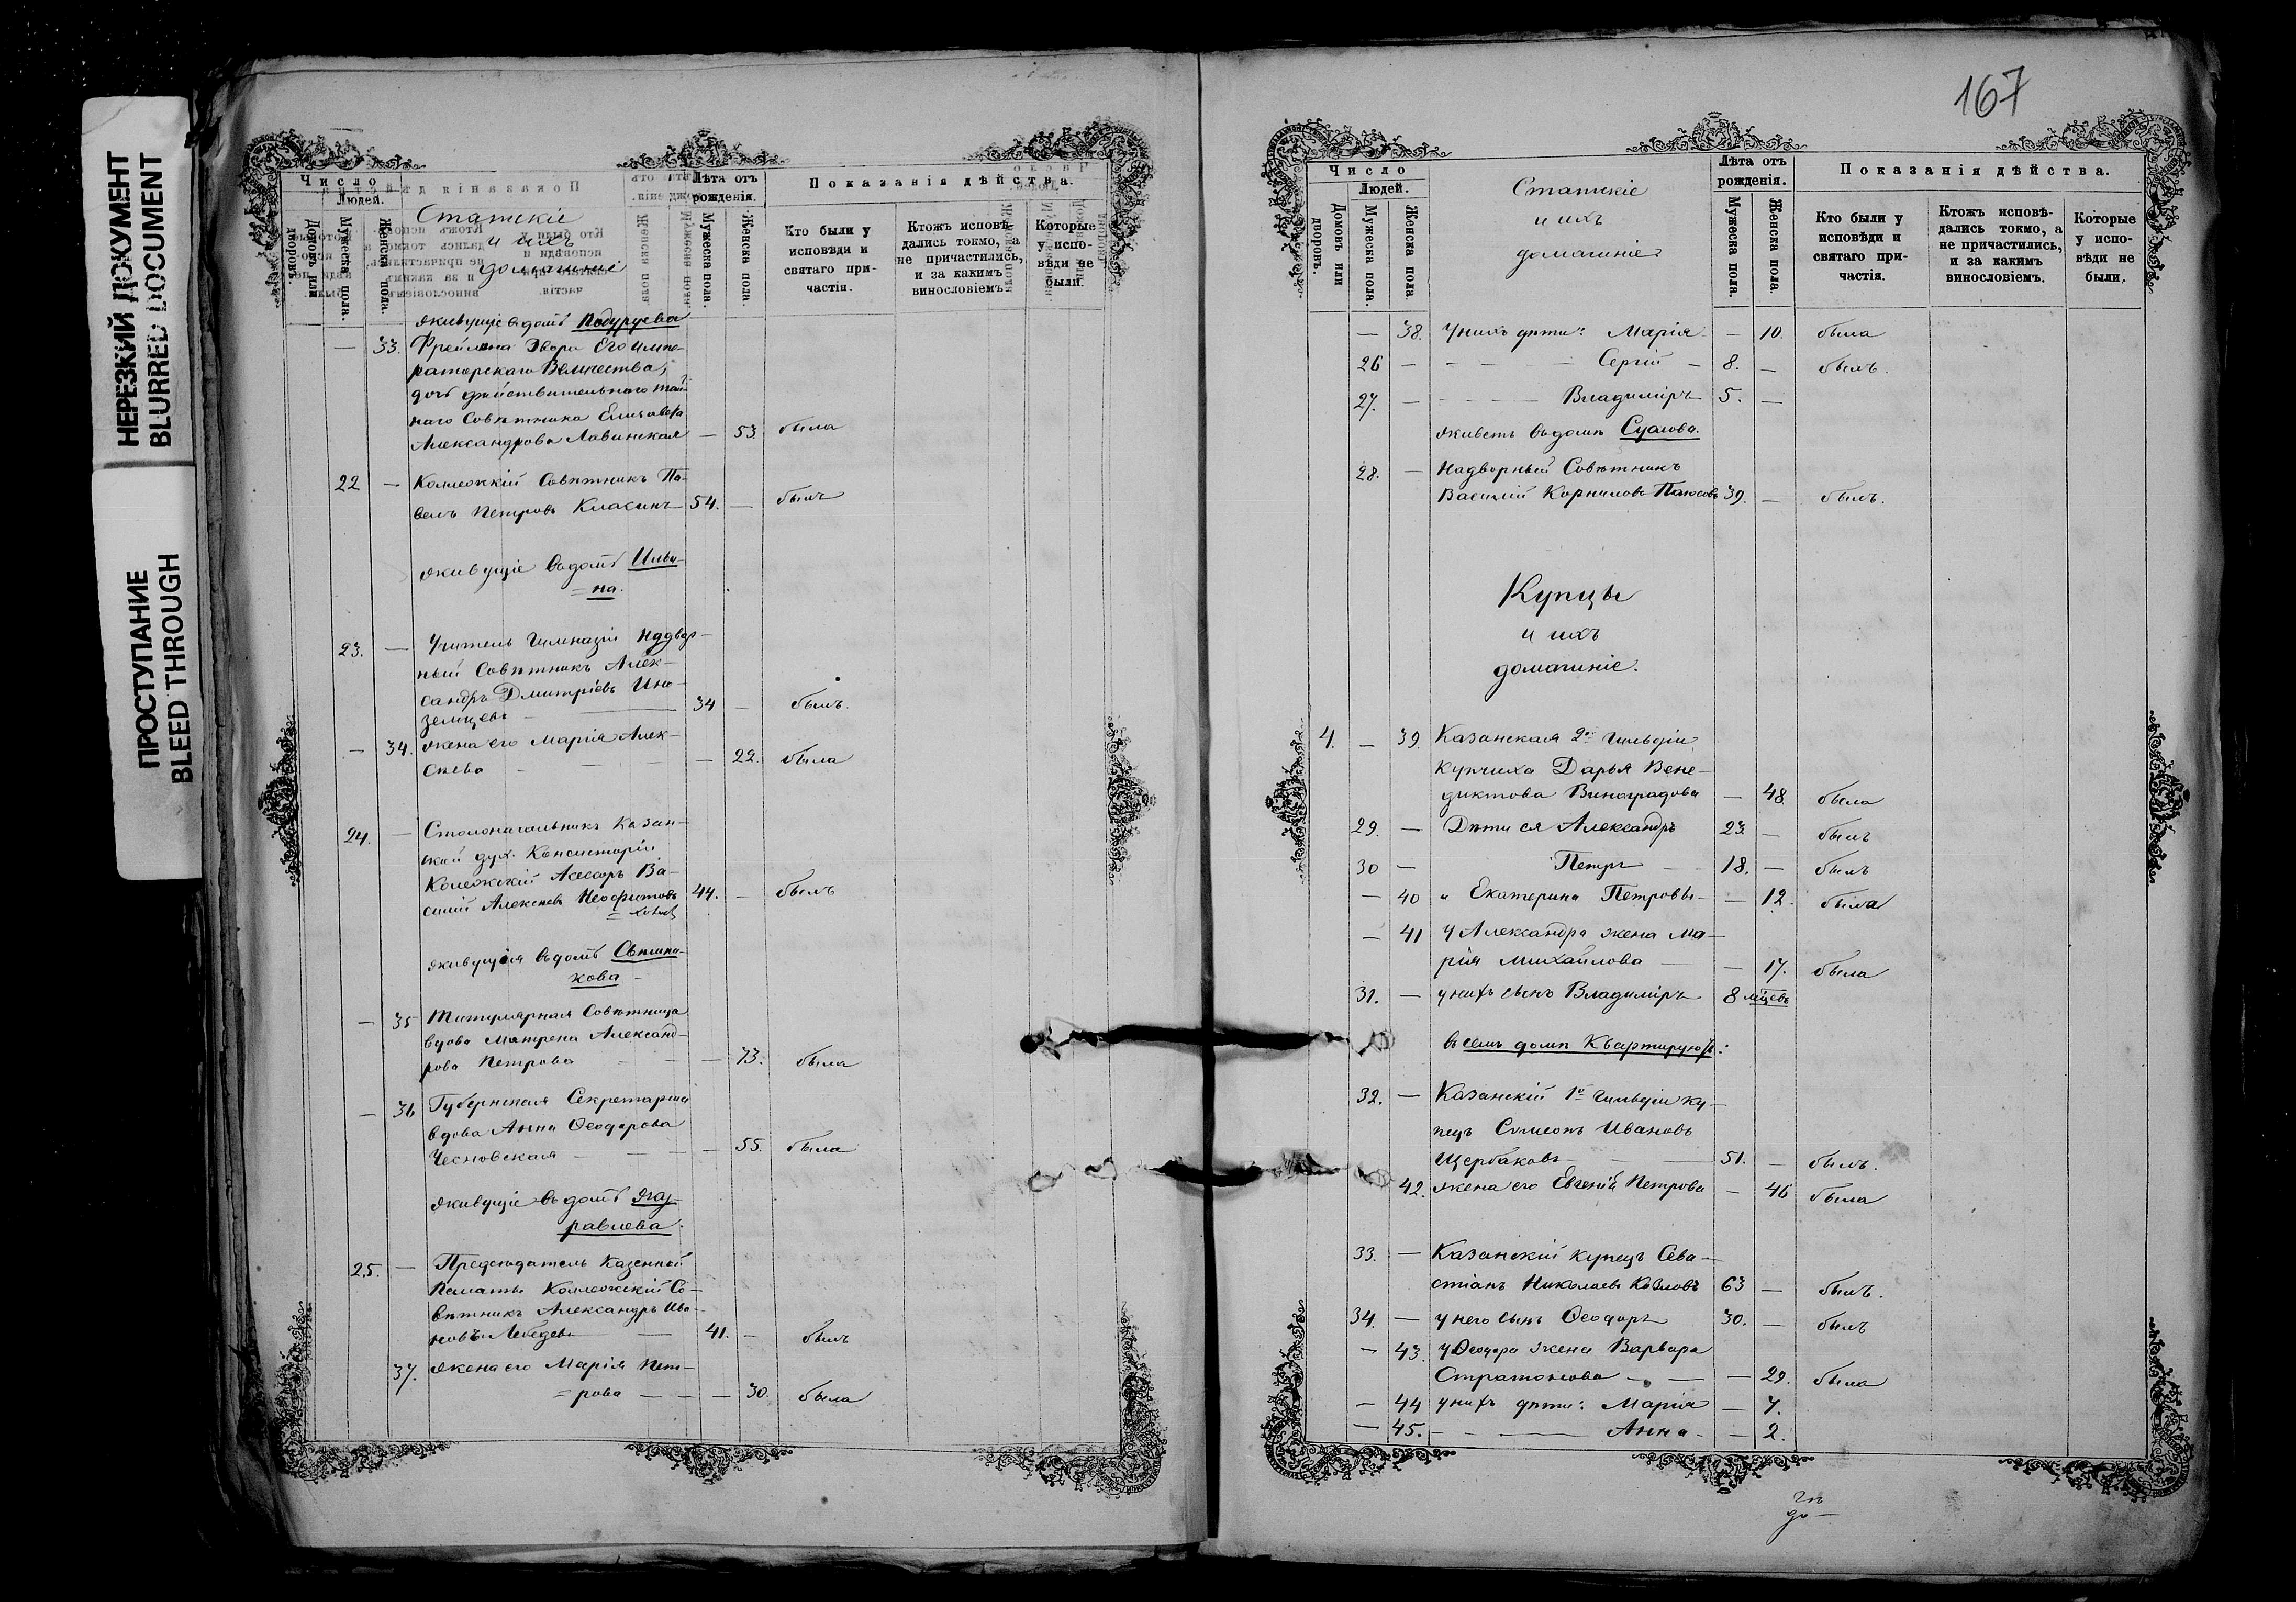 НЕРЕЗКИЙ ДОКУМЕНТ
BLURRED DOCUMENT
ПРОСТУПАНИЕ
BLEED THROUGH
Число
Людей.
Домовъ или дворовъ.
Мужеска пола.
Женска пола.
Статскіе
и ихъ
домашніе
Лѣта отъ рожденія.
Мужеска пола.
Женска пола.
Показанія дѣйства.
Кто были у исповѣди и святаго причастія.
Ктожъ исповѣдались токмо, а не причастились, и за какимъ винословіемъ.
Которые у исповѣди не были.
живущіе въ домѣ Подуруева
— 33. Фрейлина Двора Его Импе-
раторскаго Величества,
дочь дѣйствительнаго тай-
наго Совѣтника Елисавета
Александрова Лавинская — 53. была
22 — Коллежскій Совѣтникъ Па-
велъ Петровъ Класинъ 54. — былъ
живущіе въ домѣ Ильи-
=на.
23. — Учитель Гимназіи Надвор-
ный Совѣтникъ Алек-
сандръ Дмитріевъ Ино-
земцевъ — 34 — былъ.
— 34. жена его Марія Алек-
сѣева — — — 22. была
24. — Столоначальникъ Казан-
ской дух. Консисторіи
Колежскій Асесоръ Ва-
силій Алексѣевъ Неофитовъ 44. — былъ
живущія въ домѣ Свѣшни-
кова —
— 35 Титулярная Совѣтница
вдова Матрена Александ-
рова Петрова — — — 73. была
— 36 Губернская Секретарша
вдова Анна Ѳеодорова
Чесновская — — — 55. была
живущіе въ домѣ Жу-
равлева.
25. — Предсѣдатель Казенной
Палаты Коллежскій Со-
вѣтникъ Александръ Ива-
новъ Лебедевъ — 41. — былъ
37. жена его Марія Пет-
=рова — — — 30. была
167
Число
Людей.
Домовъ или дворовъ.
Мужеска пола.
Женска пола.
Статскіе
и ихъ
домашніе
Лѣта отъ рожденія.
Мужеска пола.
Женска пола.
Показанія дѣйства.
Кто были у исповѣди и святаго причастія.
Ктожъ исповѣдались токмо, а не причастились, и за какимъ винословіемъ.
Которые у исповѣди не были.
— 38. У нихъ дѣти: Марія — 10. была
26 — — — — Сергій — 8. — былъ.
27. — — — — Владиміръ 5. —
живетъ въ домѣ Суслова.
28. — Надворный Совѣтникъ
Василій Корниловъ 39. — былъ.
Купцы
и ихъ
домашніе.
4. — 39. Казанская 2ой Гильдіи
купчиха Дарья Вене-
диктова Виноградова — 48 была
29. — Дѣти ея Александръ 23. — былъ
30 — Петръ — 18. — былъ
— 40 " Екатерина Петровы — — 12. была
— 41 у Александра жена Ма-
рія Михайлова — — 17. была
31. — у нихъ сынъ Владиміръ 8 мѣцевъ
въ семъ домѣ Квартируютъ:
32. — Казанскій 1й Гильдіи ку-
пецъ Симеонъ Ивановъ
Щербаковъ — — 51. — былъ.
42. жена его Евгенія Петрова — 46 была
33. — Казанскій купецъ Сева-
стіанъ Николаевъ Козловъ 63 — былъ.
34. — у него сынъ Ѳеодоръ 30. — былъ
— 43. у Ѳеодора жена Варвара
Стратонова — — — 29. была
— 44 у нихъ дѣти: Марія — 7.
— 45. — — — Анна — — 2.